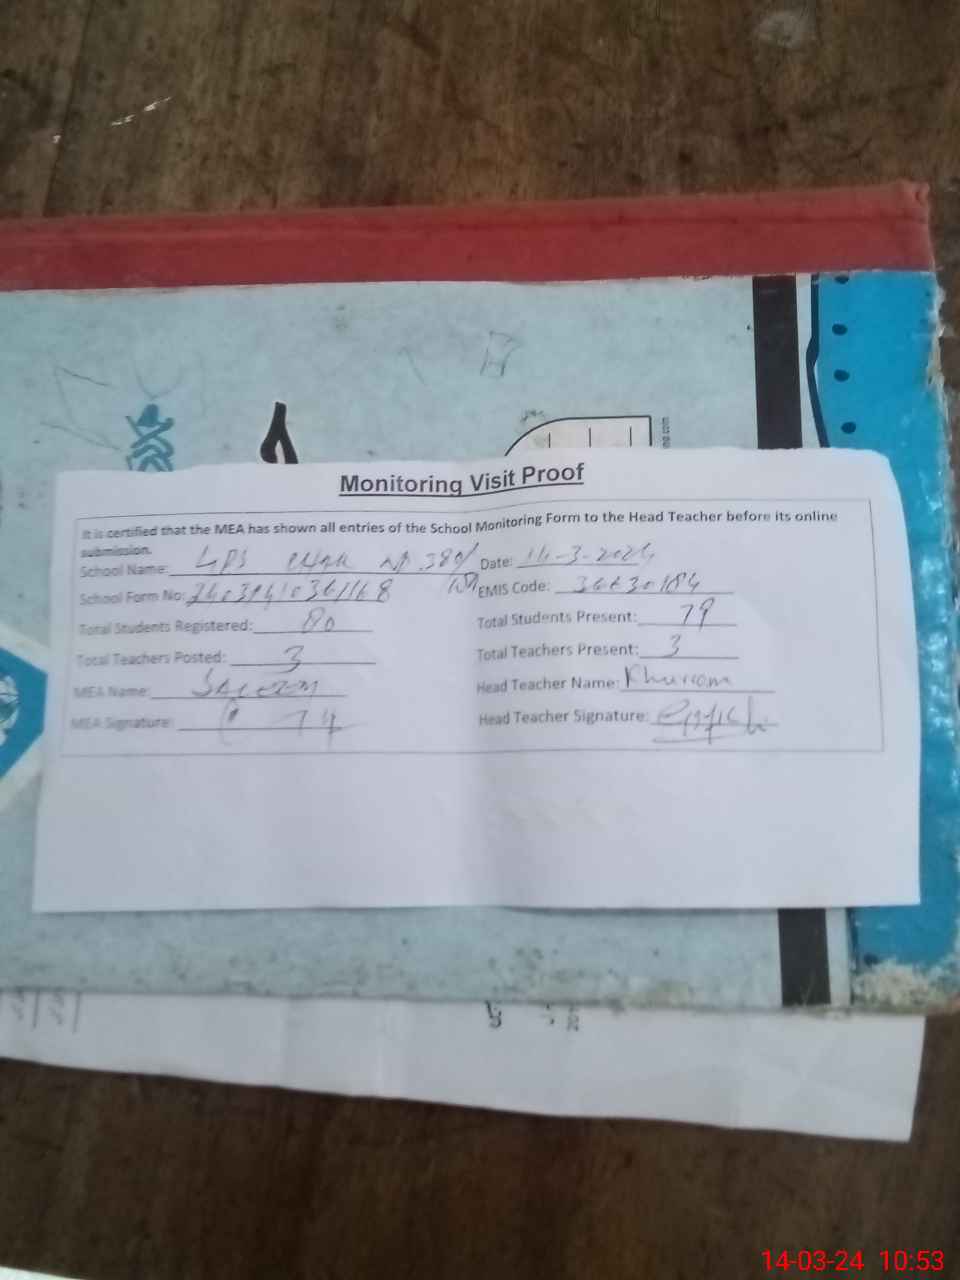 ng.com
Monitoring Visit Proof
It is certified that the MEA has shown all entries of the School Monitoring Form to the Head Teacher before its online
submission.
School Name: GPS Chak No 380/ Date: 14-3-2024
School Form No: EMIS Code: 36630184
Total Students Registered: 80 Total Students Present: 79
Total Teachers Posted: 3 Total Teachers Present: 3
MEA Name: Saleem Head Teacher Name: Khurram
MEA Signature: Head Teacher Signature:
14-03-24 10:53